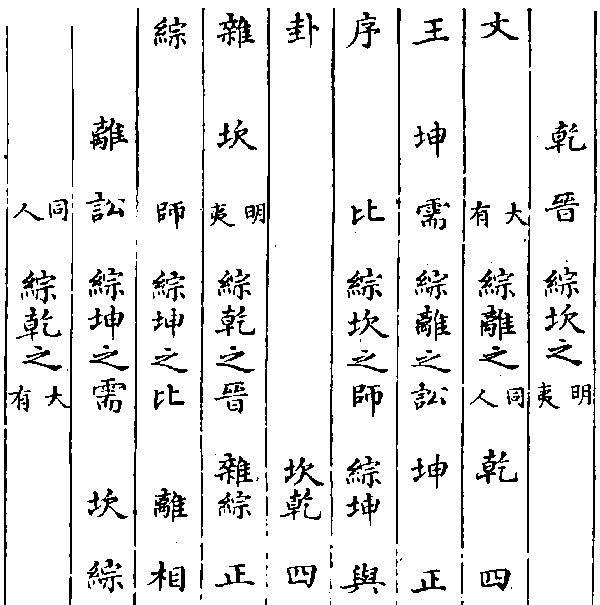 乾 晉 綜坎之明夷
文 大有 綜離之同人 乾 四
王 坤 需 綜離之訟 坤 正
序 比 綜坎之師 綜坤 與
卦 坎乾 四
雜 坎 明夷 綜乾之晉 雜綜 正
綜 師 綜坤之比 離 相
離 訟 綜坤之需 坎 綜
同人 綜乾之大有